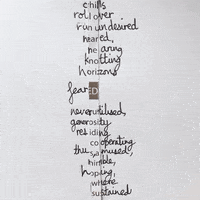 chills
roll over
run undesired
neared,
hearing
knotting
horizons
feared
never utilised,
generosity
residing
cooperating
thus amused,
himble,
hoping,
where
sustained